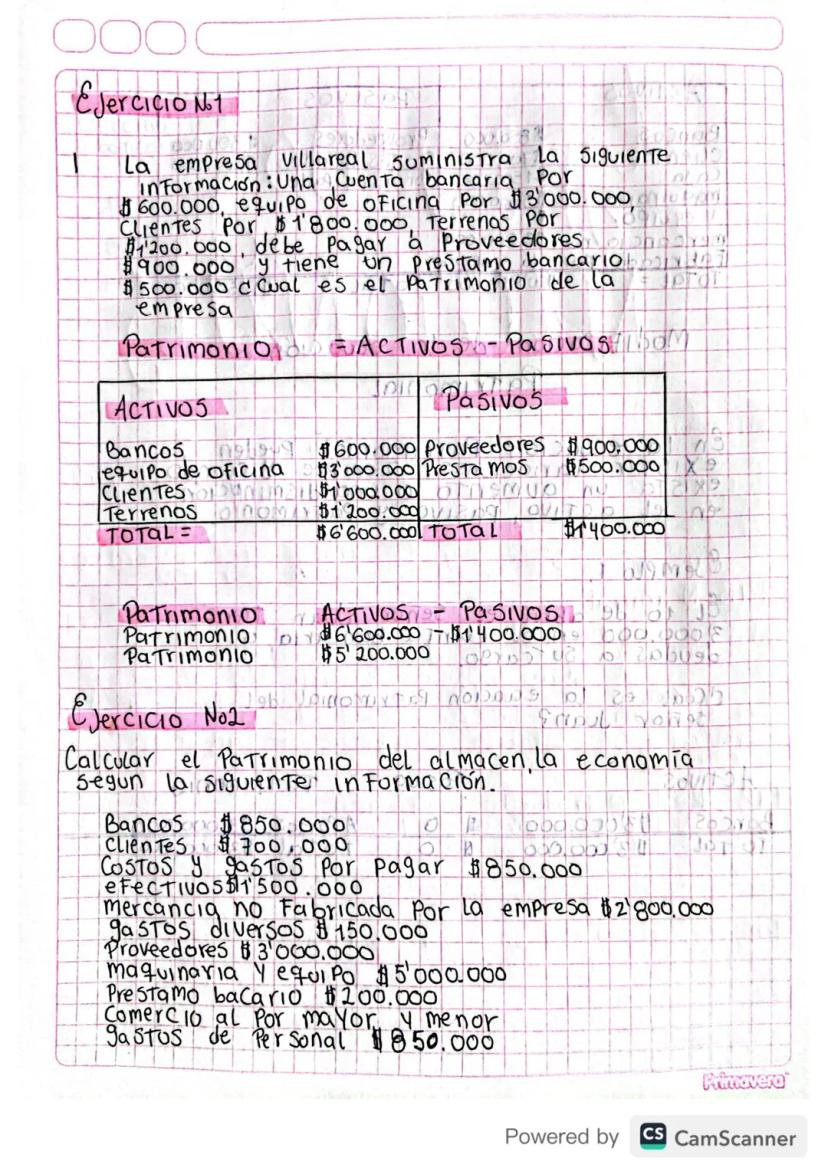 Ejercicio No1
1 La empresa Villareal suministra la siguiente
información: Una Cuenta bancaria Por
$600.000, equipo de oficina Por $3'000.000
Clientes Por $1'800.000, Terrenos Por
$1'200.000, debe Pagar a Proveedores
$900.000 y tiene un Prestamo bancario
$500.000 ¿Cual es el Patrimonio de la
empresa
Patrimonio = Activos - Pasivos
Activos Pasivos
Bancos $600.000 Proveedores $900.000
equipo de oficina $3'000.000 Prestamos $500.000
Clientes $1'000.000
Terrenos $1'200.000
Total = $6'600.000 Total $1'400.000
Patrimonio Activos - Pasivos
Patrimonio $6'600.000 - $1'400.000
Patrimonio $5'200.000
Ejercicio No2
Calcular el Patrimonio del almacen, la economía
segun la siguiente información.
Bancos $850.000
Clientes $700.000
Costos y gastos Por Pagar $850.000
efectivos $1'500.000
mercancia no Fabricada Por la empresa $2'800.000
gastos diversos $150.000
Proveedores $3'000.000
maquinaria y equipo $5'000.000
Prestamo bacario $200.000
Comercio al Por mayor y menor
gastos de Personal $850.000
Primavera
Powered by CS CamScanner